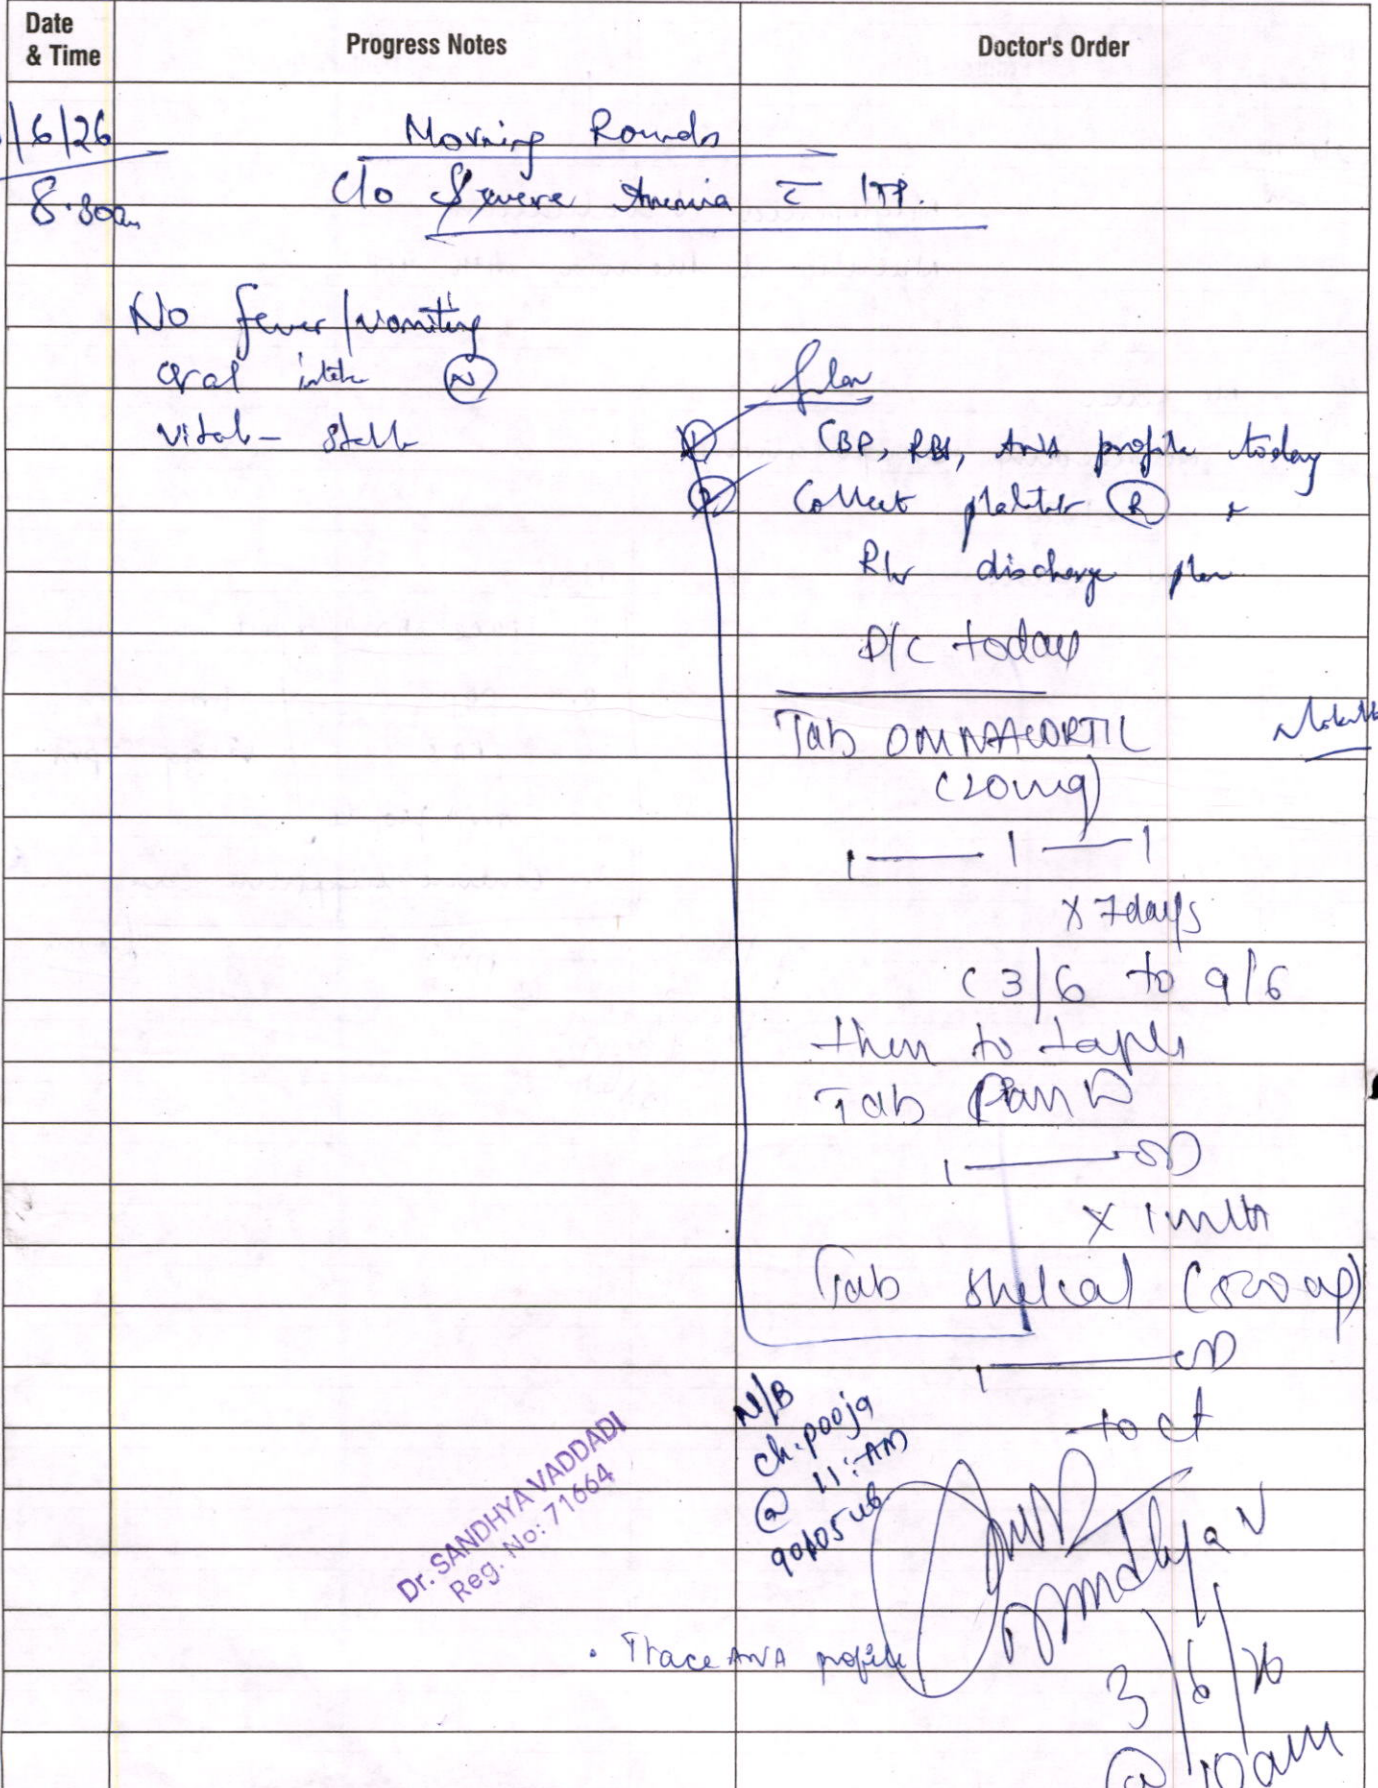 Date & Time
Progress Notes
Doctor's Order
/6/26
8.30am
Morning Rounds
C/o Severe Anemia c̄ ITP.
No fever/vomiting
Oral intake (N)
Vitals - Stable
Plan
① CBP, RBS, ANA profile today
② Collect platelet (R) &
R/v discharge plan
D/C today
Tab OMNACORTIL
(20mg)
1 — 1 — 1
x 7days
(3/6 to 9/6
then to taper
Tab Pan D
1 — OD
x 1 mth
Tab Shelcal (500 mg)
1 — OD
to ct
N/B
ch. pooja
@ 11:AM
Dr. SANDHYA VADDADI
Reg. No: 71664
Sandhya V
. Trace ANA profile
3/6/26
@ 10am